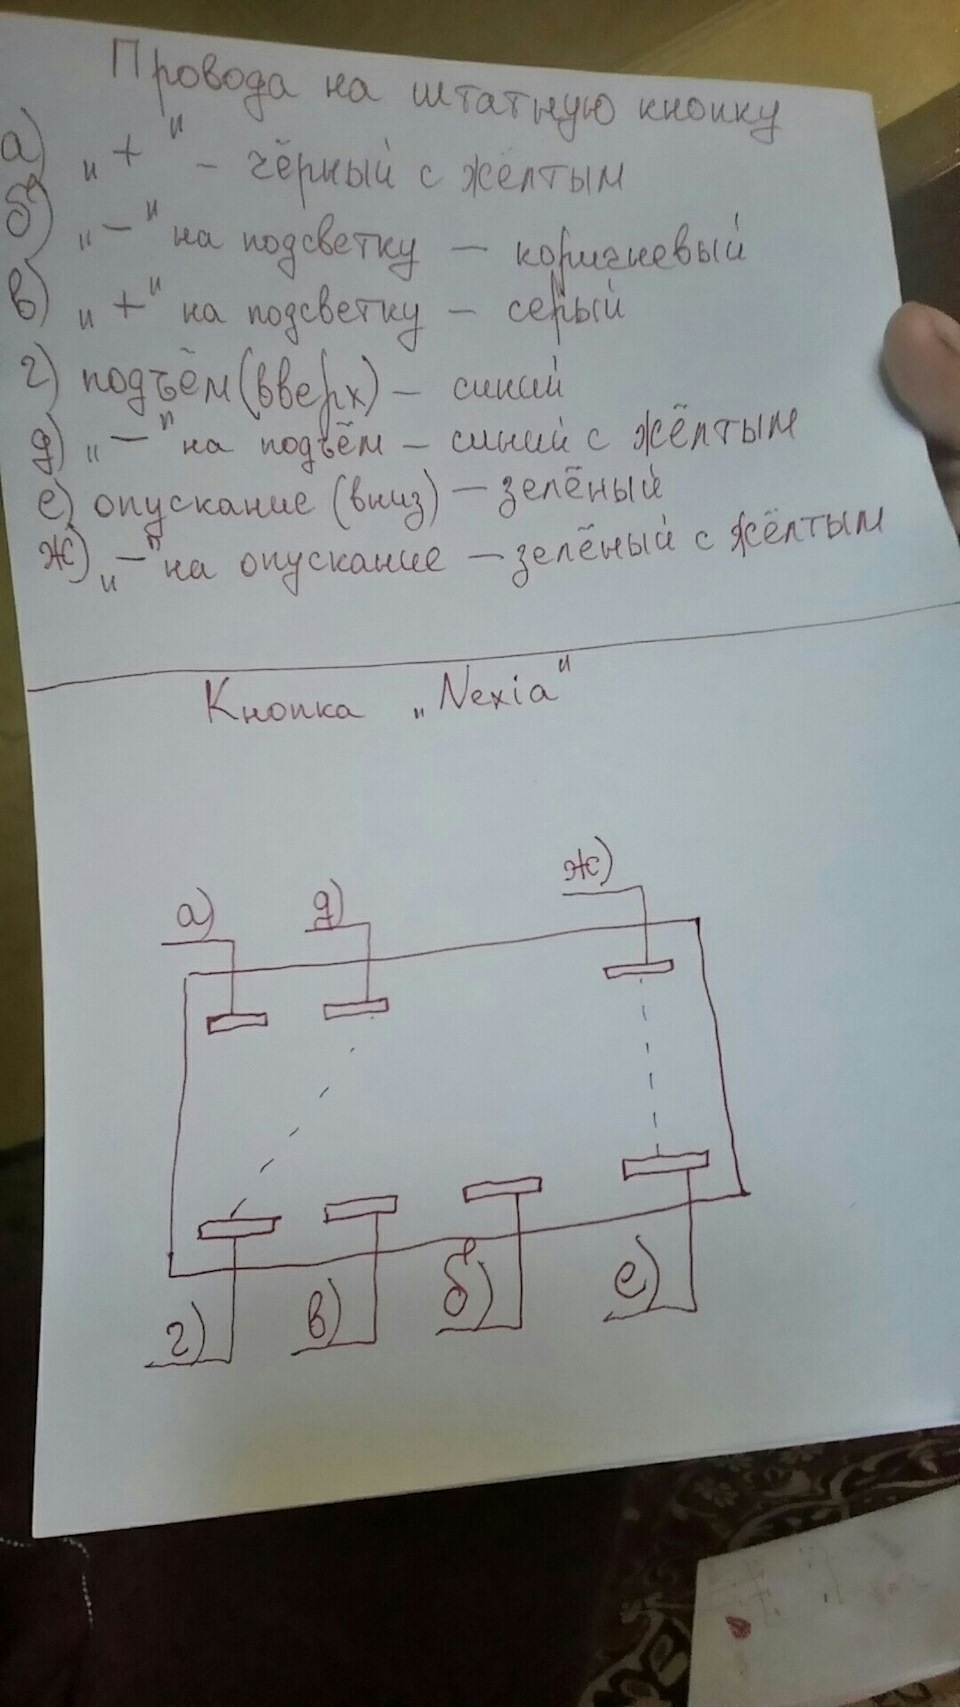 Провода на штатную кнопку
а) „+" – чёрный с жёлтым
б) „—" на подсветку — коричневый
в) „+" на подсветку – серый
г) подъём (вверх) – синий
д) „—" на подъём – синий с жёлтым
е) опускание (вниз) — зелёный
ж) „—" на опускание — зелёный с жёлтым
Кнопка „Nexia"
а) д) ж)
г) в) б) е)